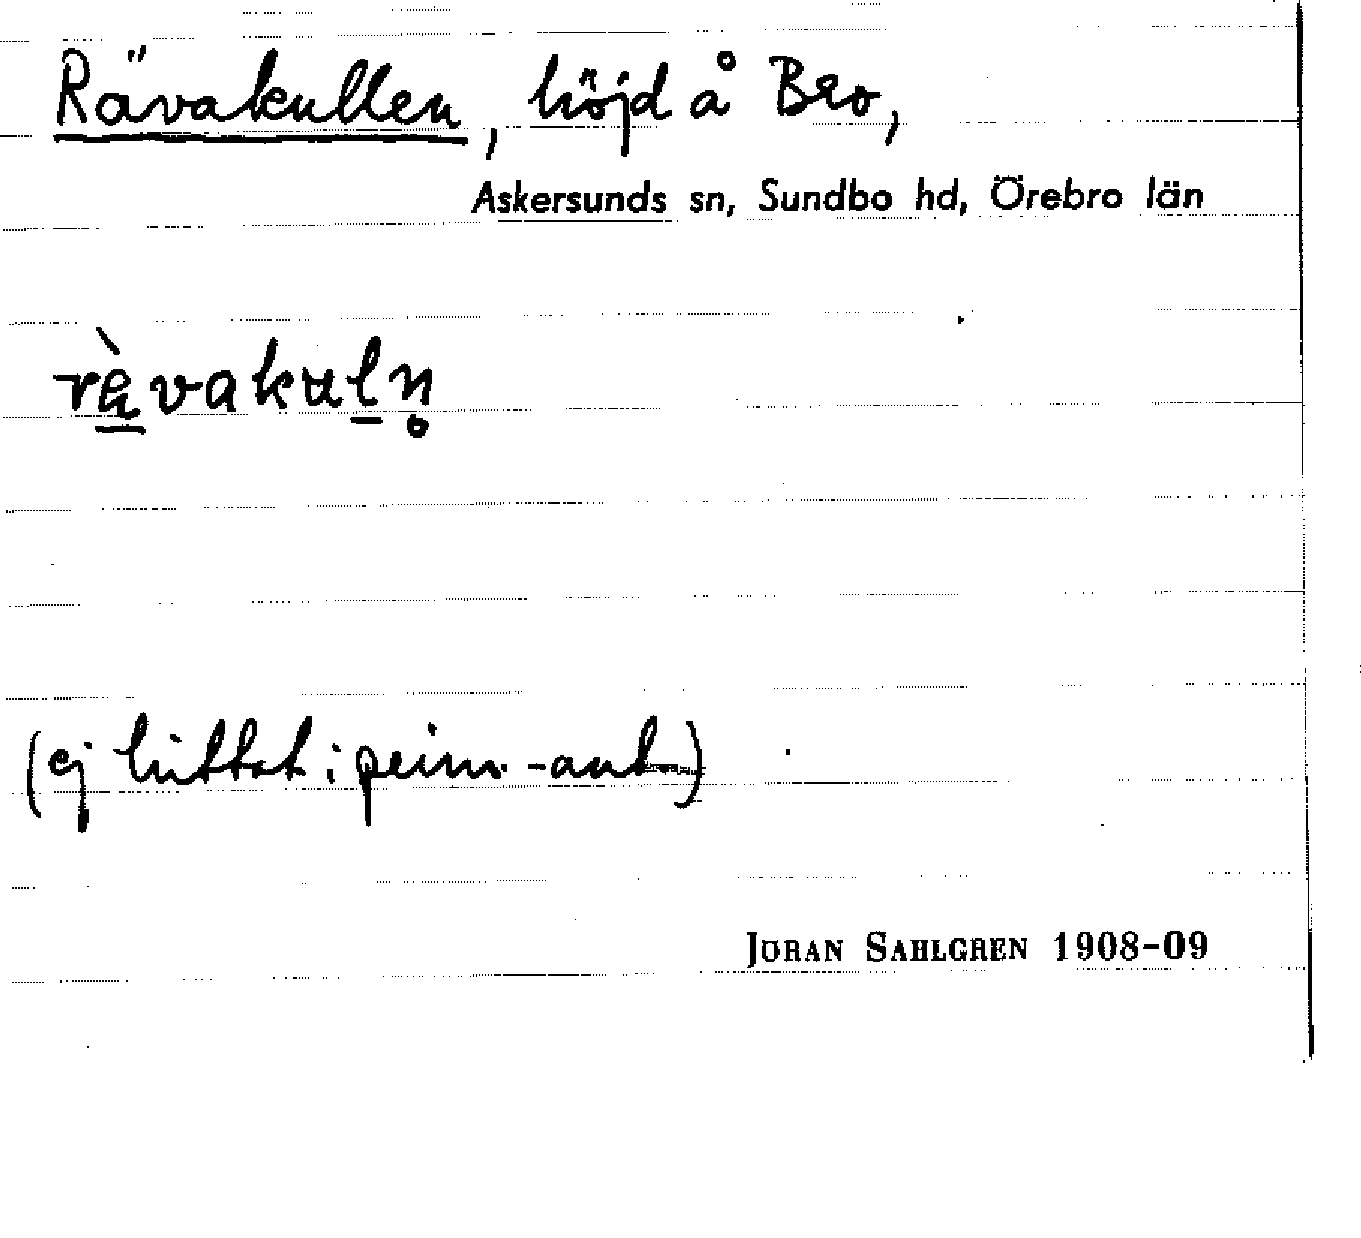 Rävakullen, höjd å Bro,
Askersunds sn, Sundbo hd, Örebro län
rä̀vakuln̥
(ej hittat i prim.-ant.)
JÖRAN SAHLGREN 1908-09